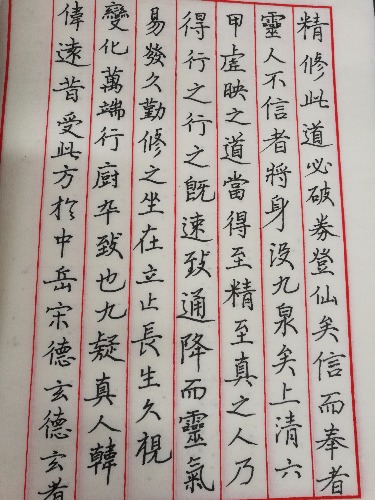 精修此道必破券登仙矣信而奉者
靈人不信者將身没九泉矣上清六
甲虛映之道當得至精至真之人乃
得行之行之既速致通降而靈氣
易發久勤修之坐在立亡長生久視
變化萬端行廚卒致也九疑真人韓
偉遠昔受此方於中岳宋德玄德玄者